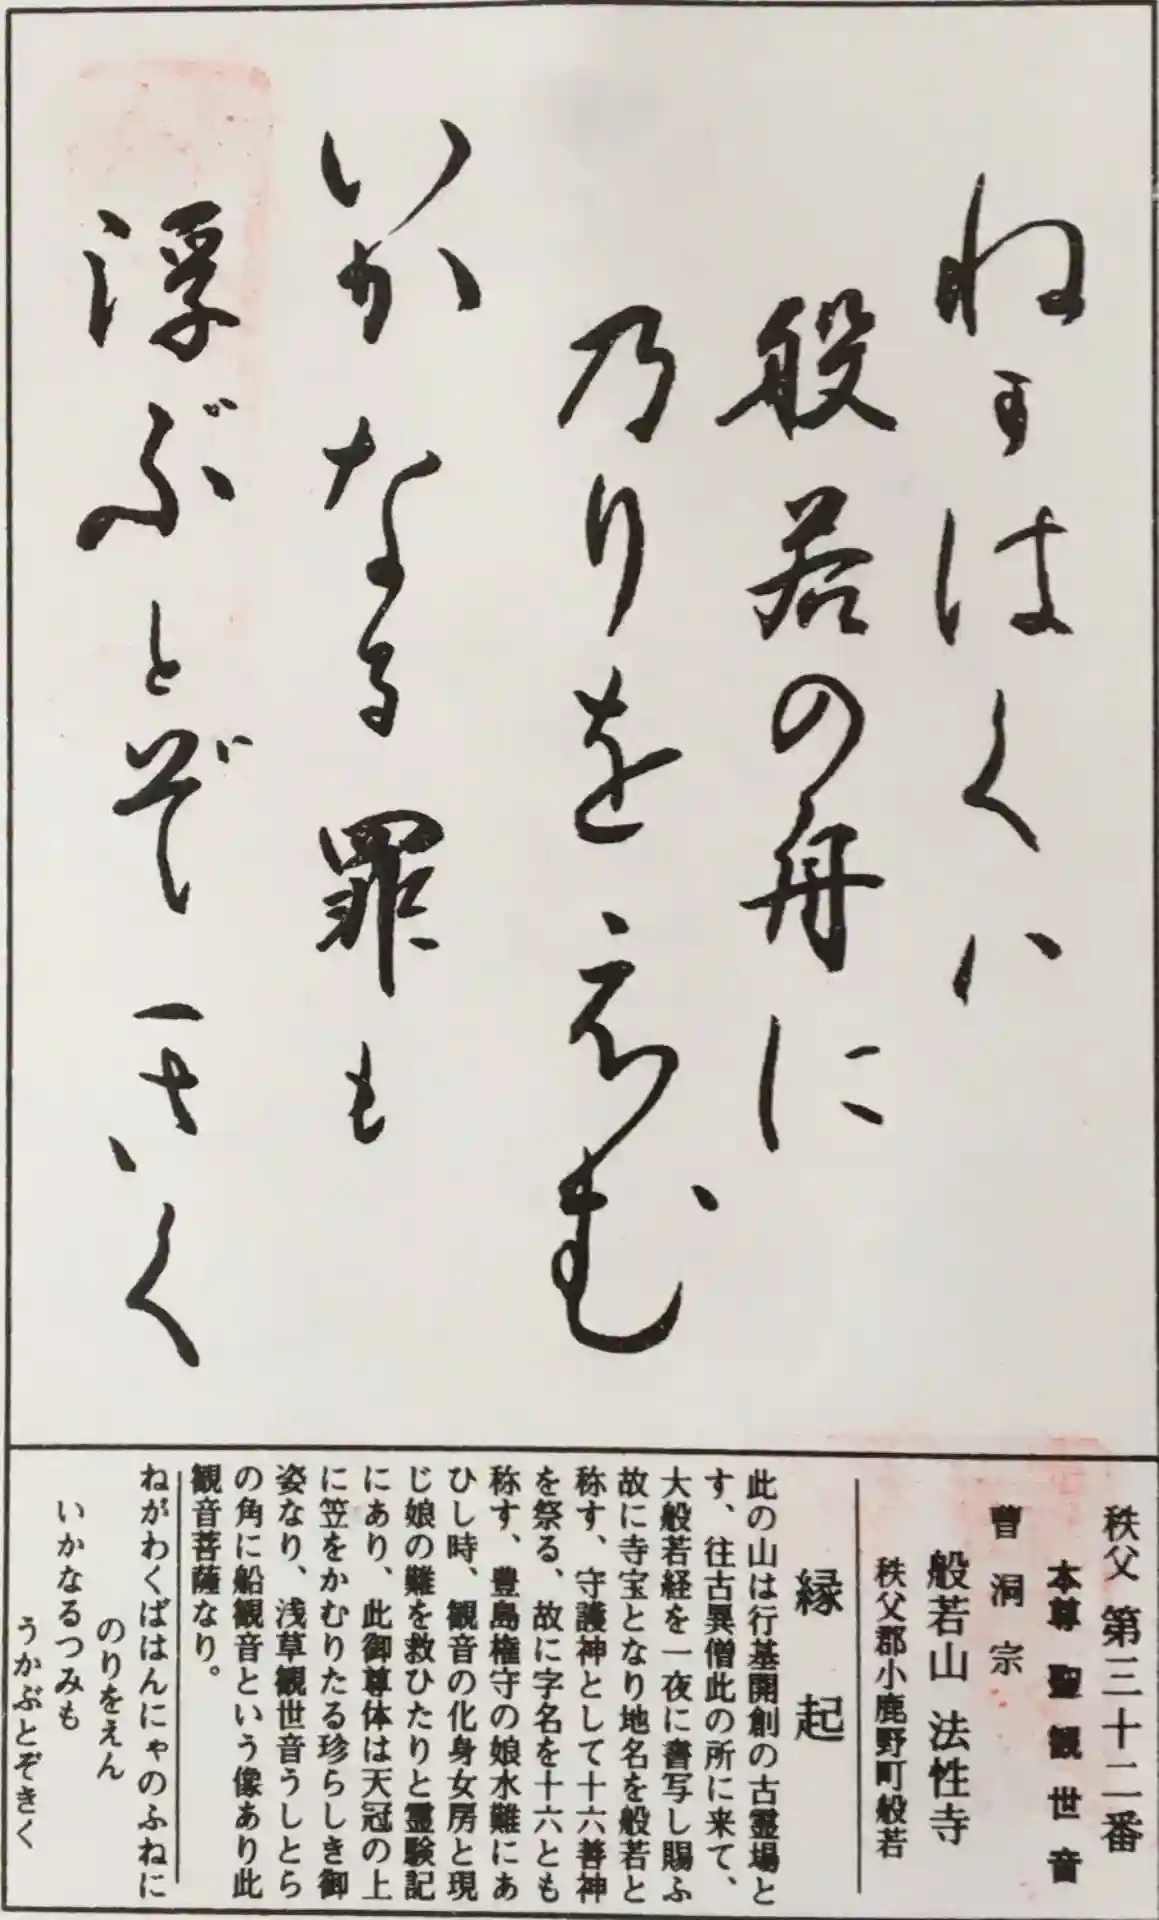 ねかはくハ
般若の舟に
乃りを衣む
いかなる罪も
浮ぶとぞきく
秩父 第三十二番
本尊 聖観世音
曹洞宗
般若山 法性寺
秩父郡小鹿野町般若
縁起
此の山は行基開創の古霊場と
す、往古異僧此の所に来て、
大般若経を一夜に書写し賜ふ
故に寺宝となり地名を般若と
称す、守護神として十六善神
を祭る、故に字名を十六とも
称す、豊島権守の娘水難にあ
ひし時、観音の化身女房と現
じ娘の難を救ひたりと霊験記
にあり、此御尊体は天冠の上
に笠をかむりたる珍らしき御
姿なり、浅草観世音うしとら
の角に船観音という像あり此
観音菩薩なり。
ねがわくばはんにゃのふねに
のりをえん
いかなるつみも
うかぶとぞきく